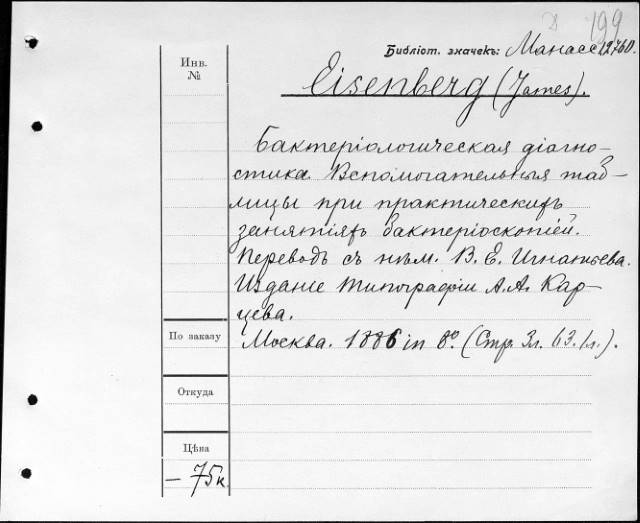 199
Библіот. значекъ: Манасс 12760.
Инв.
№
Eisenberg (James).
Бактеріологическая діагно-
стика. Вспомогательныя таб-
лицы при практическихъ
занятіяхъ бактеріоскопіей.
Переводъ съ нѣм. В. Е. Игнатьева.
Изданіе типографіи А. А. Кар-
цева.
По заказу
Москва. 1886 in 8º. (Стр. 3л. 63. 1л.).
Откуда
Цѣна
— 75к.